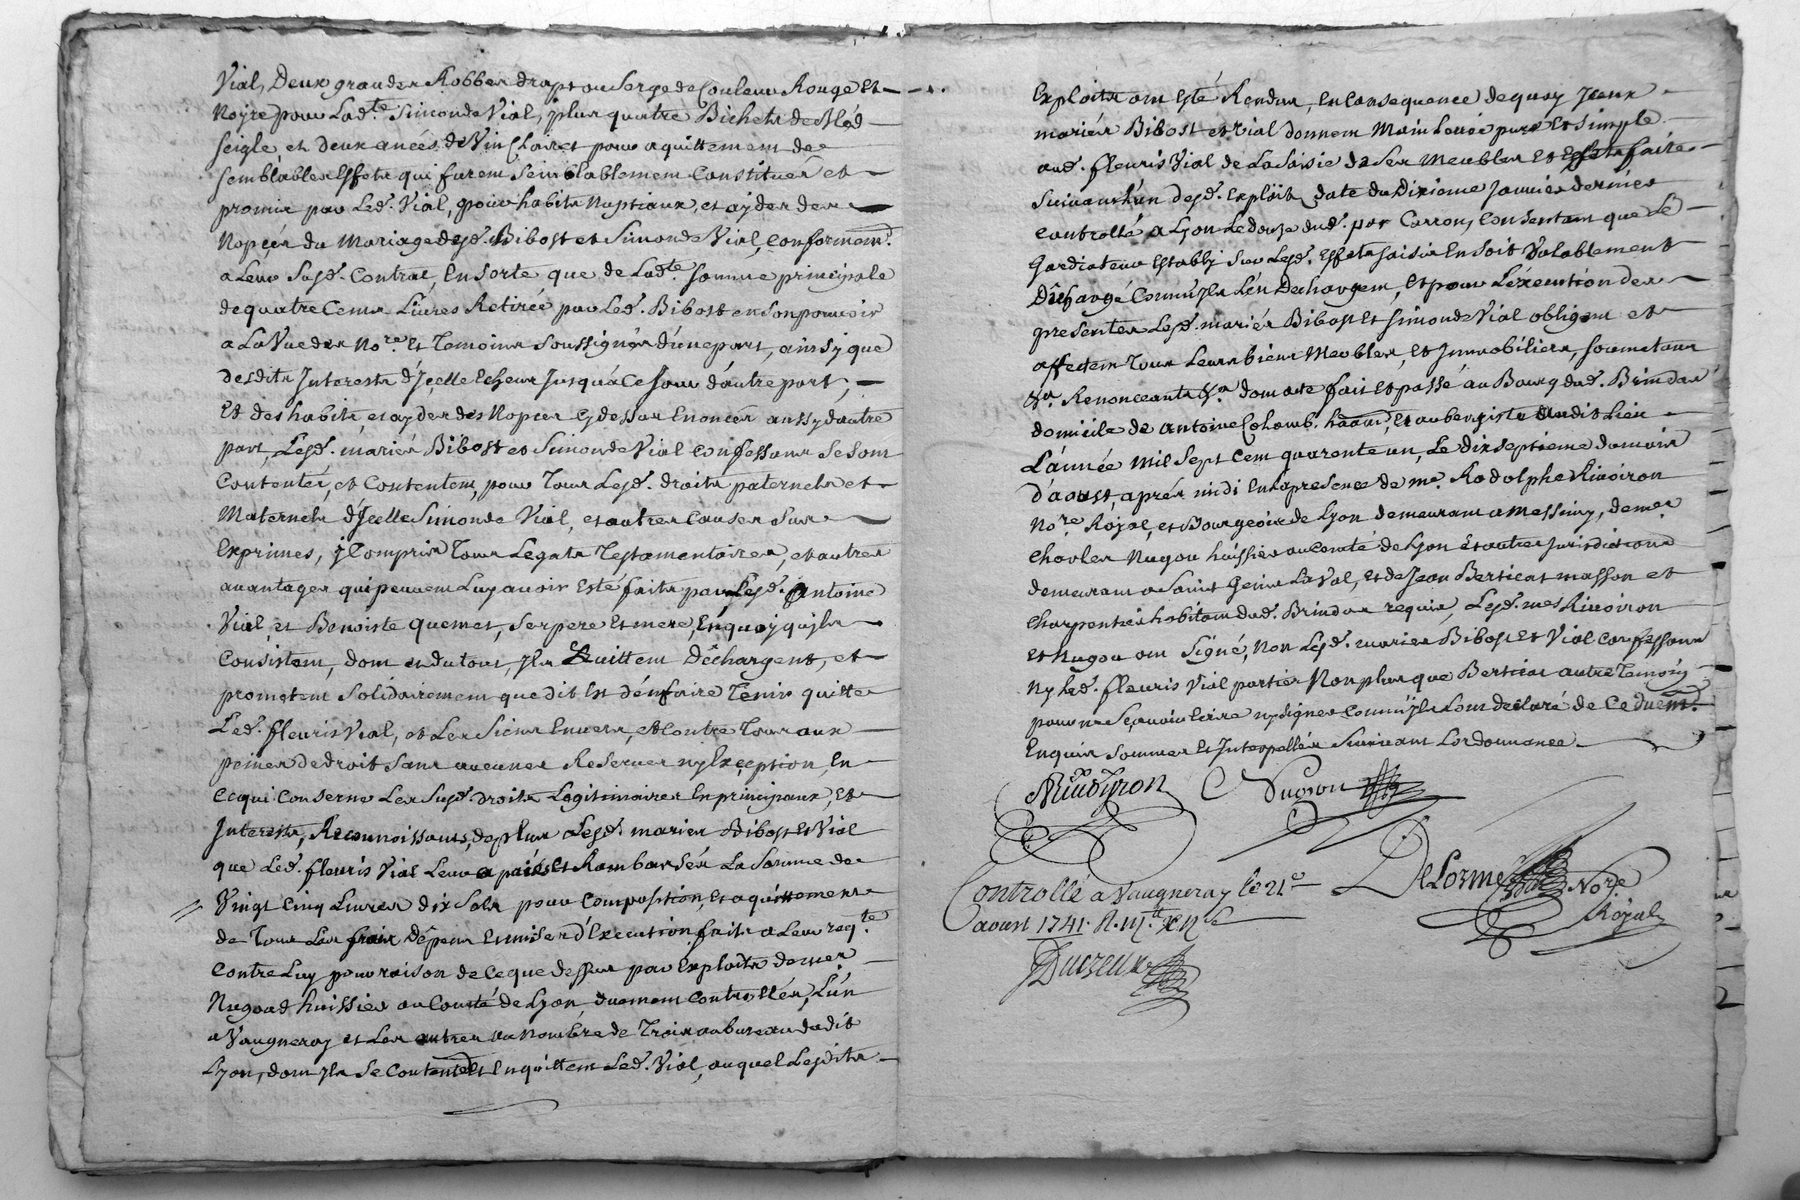 Vial, Deux grandes Robbes drapt ou Serge de Couleur Rouge Et
Noire pour Lad.te Simonde Vial, plus quatre Bichets de Bléd
seigle, et deux anées de Vin Clairet pour aquittement de
semblables Effets qui furent semblablement Constitués et
promis par Led. Vial, pour habits Nuptiaux, et aydes des
Nopces du Mariage desd. Bibost et Simonde Vial, conformem.t
a Leur Susd. Contrat, Ensorte que de Ladte somme principale
de quatre Cents Livres Retirée par Led. Bibost en Son pouvoir
a La Vue des No.re et Temoins Soussignés d'une part, ainsy que
desdits Interests d'Icelle Echeus Jusqu'à Ce Jour d'autre part,
Et des habits et aydes des Nopces Cydessus Enoncés aussy d'autre
part, Lesd. mariés Bibost et Simonde Vial Confessant Se Sont
Contentés, et Contentent, pour Tous Lesd. droits paternels et
Maternels d'Icelle Simonde Vial, et autres Causes Sus
Exprimés, y Compris Tous Legats Testamentaires, et autres
avantages qui peuvent Luy avoir Esté faits par Lesd. Antoine
Vial, et Benoiste quemet, Ses pere et mere, En quoy qu'ils
Consistent, dont et du tout, Ils Quittent Déchargent, et
promettent Solidairement que dit Est d'en faire Tenir quitte
Led. fleuris Vial, et Les Siens Envers, et Contre Tous aux
peines de droit Sans aucunes Reserves ny Exception, En
Ce qui Conserne Les Susd. droits Legitimaires En principaux, Et
Interests, Reconnoissants, de plus Lesd. mariés Bibost et Vial
que Led. fleuris Vial Leur a paiés et Rambarsés La Somme de
Vingt Cinq Livres dix Sols pour Composition, et aquittement
de Tous Les frais Dépens Et mises d'Execution, faits a Leur reqte
Contre Luy pour raison de Ce que dessus par Exploits de mes
Nugoud huissier au Comté de Lyon, duement Controllés, L'un
a Vaugneray et Les autres au Nombre de Trois au bureau dudit
Lyon, dont Ils Se Contentent Enquittent Led. Vial, auquel Lesdits
Exploits ont Esté Rendus, En Consequence de quoy Iceux
mariés Bibost et Vial donnent Main Levée pure Et Simple
aud. fleuris Vial de La Saisie de Ses Meubles Et Effets faite
Suivant L'un desd. Exploits date du Dixieme Janvier dernier
Controllé a Lyon Le douze dud. par Carron, Consentant que Le
Gardiateur Estably Sur Lesd. Effets Saisis En Soit Valablement
Déchargé Comm'Ils L'en Dechargent, Et pour L'éxecution des
presentes Lesd. mariés Bibost Et Simonde Vial obligent et
affectent Tous Leurs biens Meubles, Et Immobiliers, soumettant
&a. Renonceants &a. dont acte fait Et passé au Bourg dud. Brindas
domicile de antoine Cohomb, Et aubergiste dudit Lieu
L'année Mil Sept Cent quarente un, Le dix septieme du mois
d'aoust, aprés midi En La presence de me. Rodolphe Rivoiron
No.re Royal, et Bourgeois de Lyon demeurant a messimy, de me.
Charles Nugou huissier au Comté de Lyon Et autres Jurisdictions
demeurant a Saint Genis La Val, Et de Jean Berticat masson et
Charpentier habitant dud. Brindas requis, Lesd. mes Rivoiron
et Nugou ont Signé, Non Lesd. mariés Bibost Et Vial Confessant
Ny Led. fleuris Vial parties Non plus que Berticat autre Temoin
pour ne Sçavoir Ecrire ny Signer Comm'Ils L'ont declaré de Ce duemt.
Enquis Sommés Et Interpellés Suivant L'ordonnance
Rivoiron
C Nugou
DeLorme Nore
Royal
Controllé a Vaugneray le 21e
aoust 1741.
Ducreux